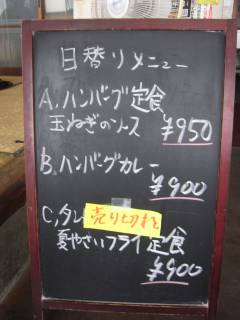 日替りメニュー
A.ハンバーグ定食
玉ねぎのソース
¥950
B.ハンバーグカレー
¥900
C.タレ
売り切れ
夏やさいフライ定食
¥900